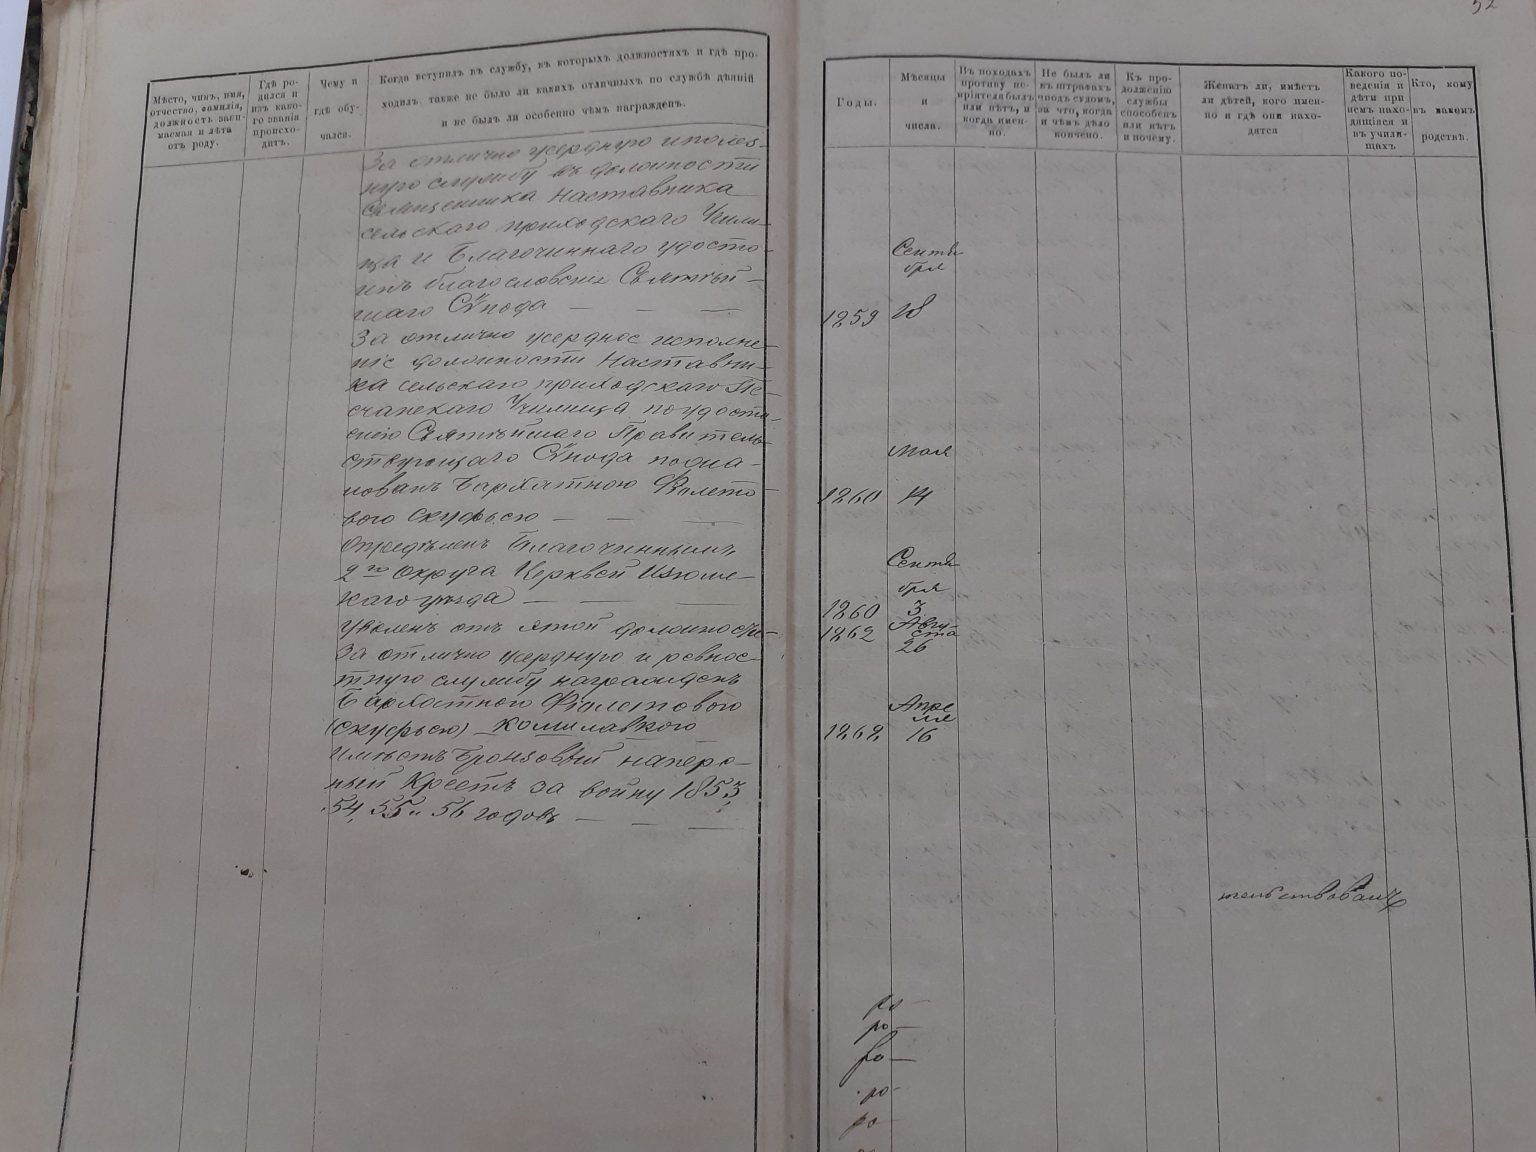 52
Мѣсто, чинъ, имя,
отчество, фамилія,
должность зани-
маемая и лѣта
отъ роду.
Гдѣ ро-
дился и
изъ како-
го званія
происхо-
дитъ.
Чему и
гдѣ обу-
чался.
Когда вступилъ въ службу, въ которыхъ должностяхъ и гдѣ про-
ходилъ, также не было ли какихъ отличныхъ по службѣ дѣяній
и не былъ ли особенно чѣмъ награжденъ.
За отлично усердную и полез-
ную службу въ должности
Священника Наставника
сельскаго приходскаго Учили-
ща и Благочиннаго удосто-
инъ благословенія Святѣй-
шаго Сѵнода — — —
За отлично усердное исполне-
ніе должности Наставни-
ка сельскаго приходскаго Пе-
счанскаго Училища по удосто-
енію Святѣйшаго Правитель-
ствующаго Сѵнода пожа-
лованъ бархатною Фіолето-
вого скуфьею — — —
Опредѣленъ Благочиннымъ
2го Округа Церквей Изюмс-
каго уѣзда — — —
Уволенъ отъ этой должности-
За отлично усердную и ревнос-
тную службу награжденъ
Бархатного Фіолетового
(скуфьею) камилавкого
Имѣетъ бронзовый наперс-
ный Крестъ за войну 1853,
54, 55 и 56 годовъ — — —
Годы.
Мѣсяцы
и
числа.
Въ походахъ
противу не-
пріятеля былъ
или нѣтъ, и
когда имен-
но.
Не былъ ли
въ штрафахъ
подъ судомъ,
за что, когда
и чѣмъ дѣло
кончено.
Къ про-
долженію
службы
способенъ
или нѣтъ
и почему.
Женатъ ли, имѣетъ
ли дѣтей, кого имен-
но и гдѣ они нахо-
дятся
Какого по-
веденія и
дѣти при
немъ нахо-
дящіяся и
въ учили-
щахъ
Кто, кому
въ какомъ
родствѣ.
Сентя
бря
1859
Мая
1860 14
Сентя
бря
1860 3
Авгу-
ста
1862 26
Апре
ля
1868 16
тельствовалъ
ро—
ро—
ро—
ро-
ро-